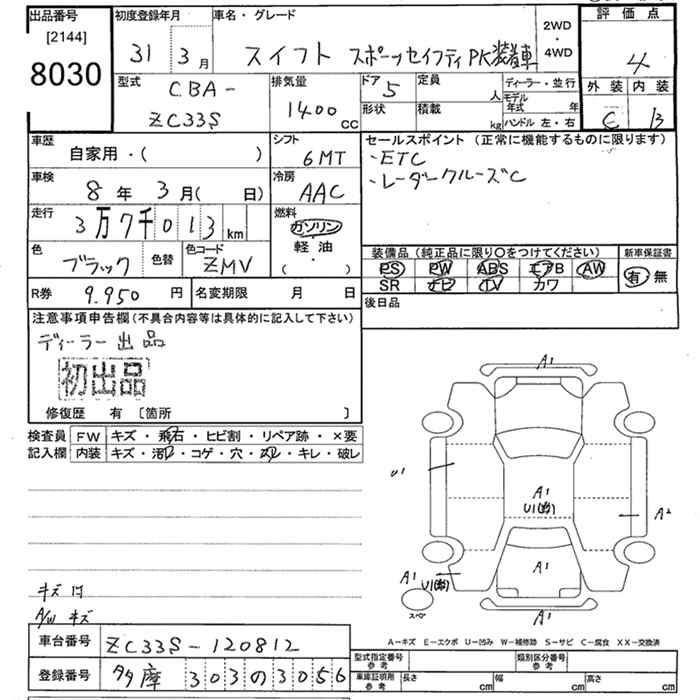 出品番号
[2144]
8030
初度登録年月
31 3月
車名・グレード
スイフト スポーツセイフティPK装着車
2WD
・
4WD
評価点
4
外装 内装
C B
型式
CBA-
ZC33S
排気量
1400
cc
ドア
5
定員
人
形状
積載
kg
ディーラー・並行
モデル年式 年
ハンドル 左・右
車歴
自家用・( )
シフト
6MT
車検
8年 3月( 日)
冷房
AAC
走行
3万7千013km
燃料
ガソリン
・
軽油
・
( )
色
ブラック
色替
色コード
ZMV
R券
9.950円
名変期限
月 日
セールスポイント(正常に機能するものに限ります)
・ETC
・レーダークルーズC
装備品(純正品に限り○をつけてください)
PS PW ABS エアB AW
SR ナビ TV カワ
新車保証書
有 無
後日品
注意事項申告欄(不具合内容等は具体的に記入して下さい)
ディーラー出品
初出品
修復歴 有 〔箇所 〕
検査員
記入欄
FW キズ・飛石・ヒビ割・リペア跡・×要
内装 キズ・汚レ・コゲ・穴・スレ・キレ・破レ
キズ 付
A/W キズ
A1
U1
A1
U1
A2
A1
A1
U1
スペア
A1
A-キズ E-エクボ U-凹み W-補修跡 S-サビ C-腐食 XX-交換済
車台番号
ZC33S-120812
登録番号
多摩 303の3056
型式指定番号
参考
類別区分番号
参考
車庫証明用
参考
長さ cm
幅 cm
高さ cm